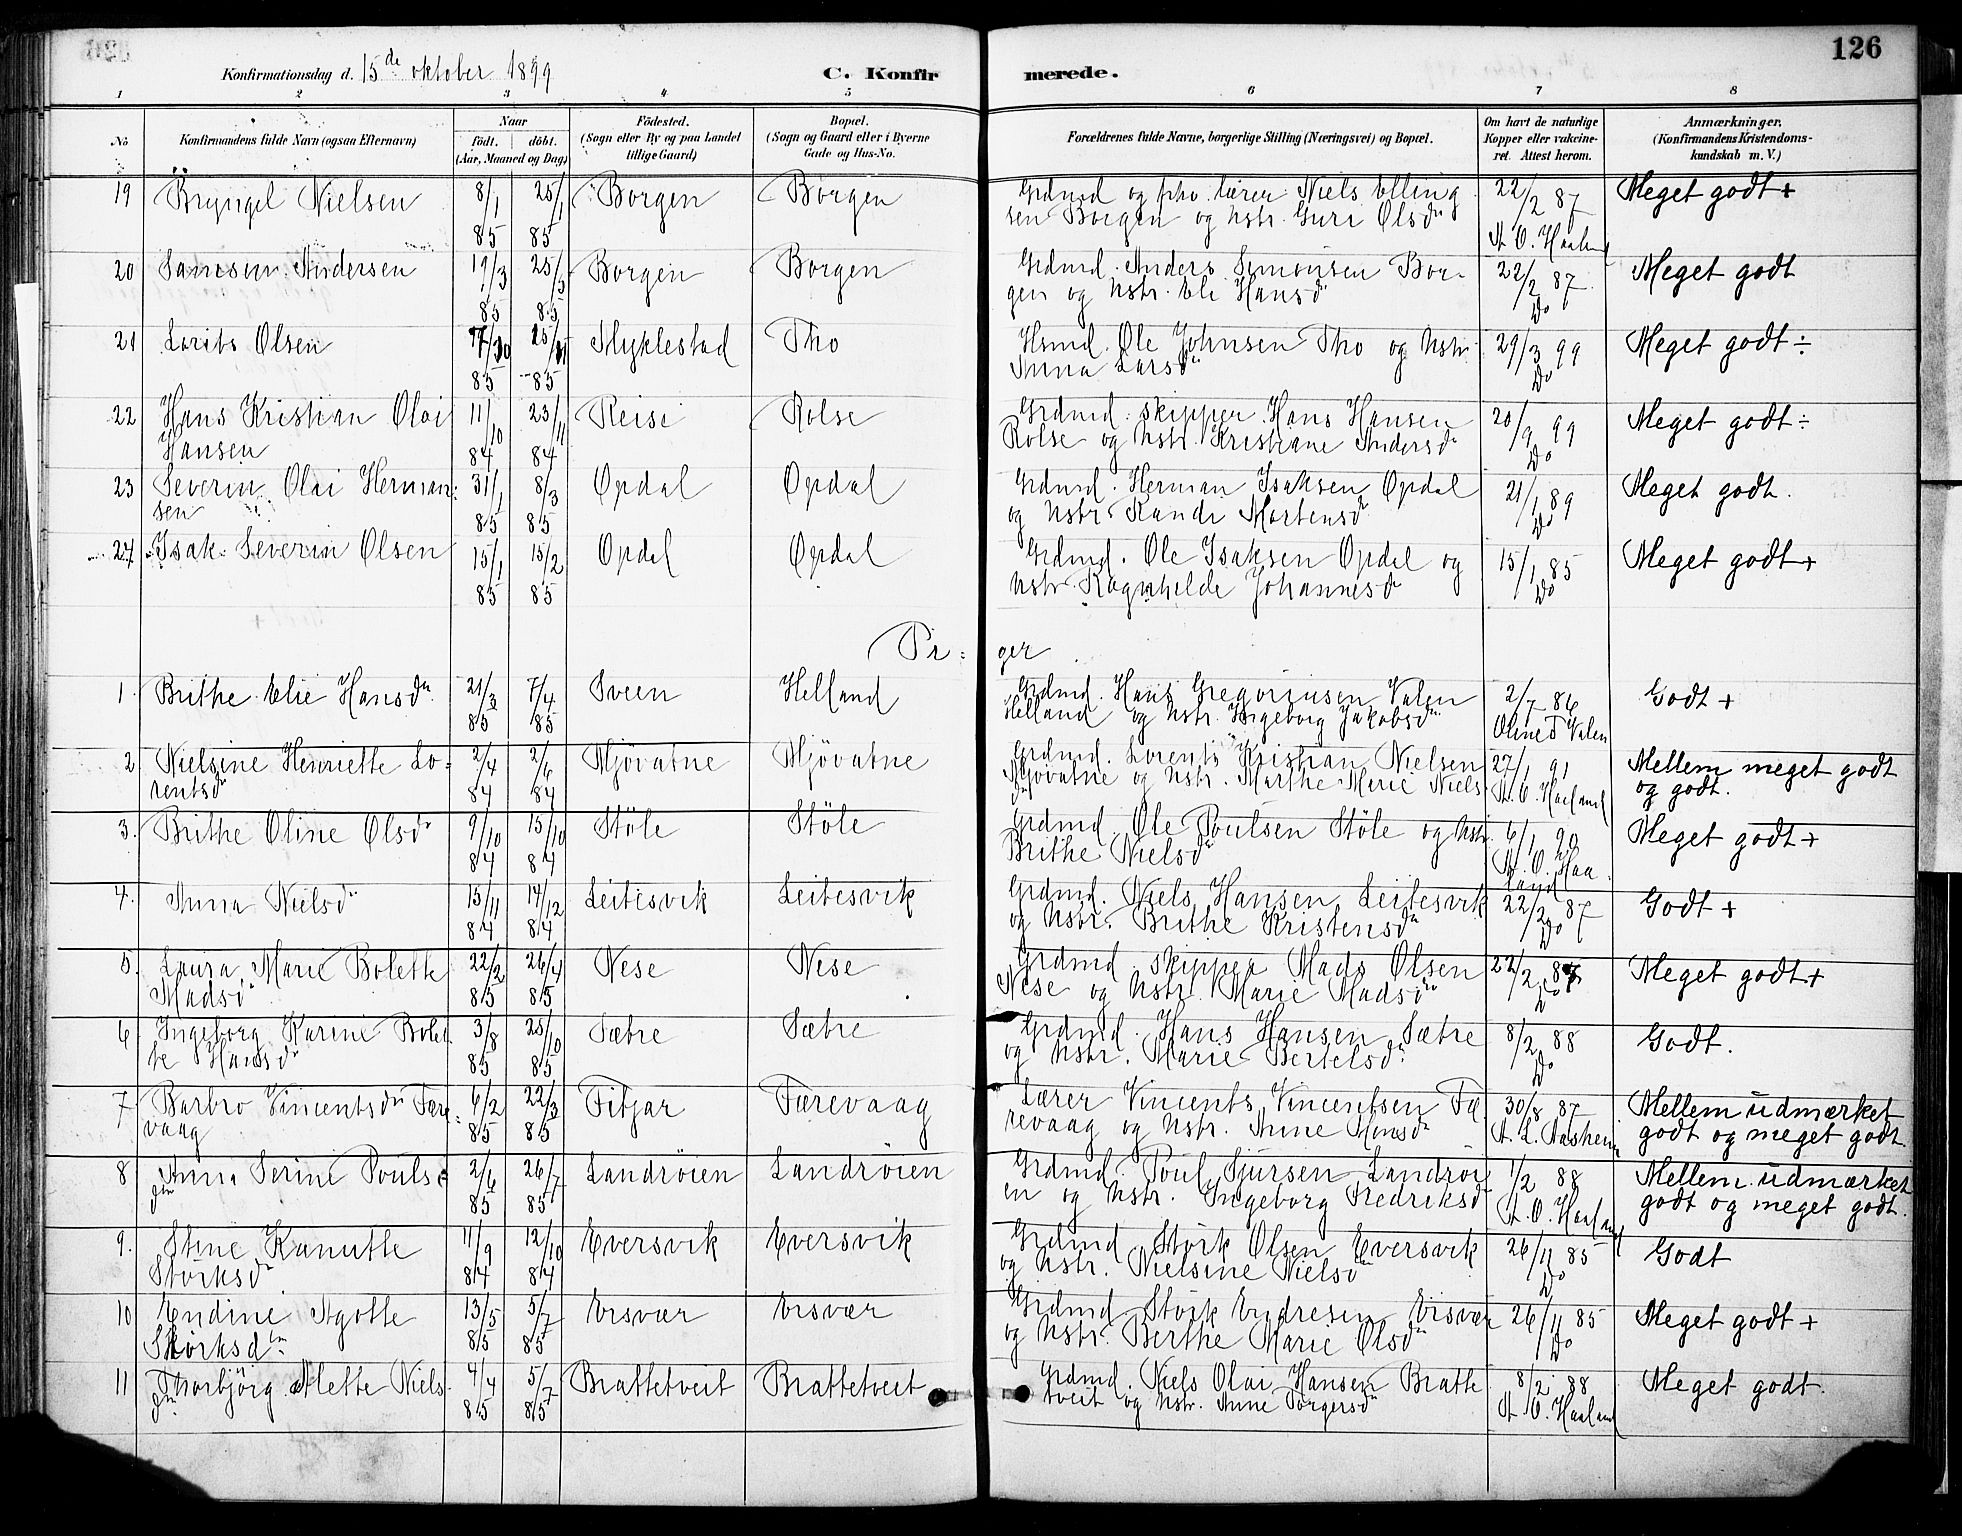 126
Konfirmationsdag d. 15de oktober 1899
C. Konfirmerede.
1 2 3 4 5 6 7 8
No
Konfirmandens fulde Navn (ogsaa Efternavn)
Naar
födt. döbt.
(Aar, Maaned og Dag)
Födested.
(Sogn eller By og paa Landet
tillige Gaard)
Bopæl.
(Sogn og Gaard eller i Byerne
Gade og Hus-No.
Forældrenes fulde Navne, borgerlige Stilling (Næringsvei) og Bopæl.
Om havt de naturlige
Kopper eller vakcine-
ret. Attest herom.
Anmærkninger.
(Konfirmandens Kristendoms-
kundskab m. V.)
19 Bryngel Nielsen 8/1 85 25/1 85 Borgen Borgen Grdmd og lærer Niels Elling
sen Borgen og Hstr. Guri Olsdr 22/2 87 A. O. Haaland Meget godt +
20 Samson Andersen 19/3 85 25/5 85 Borgen Borgen Grdmd. Anders Simonsen Bor-
gen og Hstr. Eli Hansdr 22/2 87. Do Meget godt
21 Lorits Olsen 85 85 Myklestad Tho Hsmd. Ole Johnsen Tho og Hstr
Anna Larsdr 29/3 99 Do Meget godt ÷
22 Hans Kristian Olai
Hansen 11/10 84 23/11 84 Reisi Rolse Grdmd. skipper Hans Hansen
Rolse og Hstr. Kristiane Andersdr 20/9 99 Do Meget godt ÷
23 Severin Olai Herman-
sen 31/1 85 8/3 85 Opdal Opdal Grdmd. Herman Isaksen Opdal
og Hstr. Randi Mortensdr 21/1 89 Do Meget godt.
24 Isak Severin Olsen 15/1 85 15/2 85 Opdal Opdal Grdmd. Ole Isaksen Opdal og
Hstr Ragnhilde Johannesdr 15/1 85 Do Meget godt +
Pi- ger
1. Brithe Elie Hansdr 21/3 85 7/4 85 Sveen Helland Grdmd. Hans Gregoriusen Valen
Helland og Hstr. Ingeborg Jakobsdr 2/7 86 Oline D Valen Godt +
2 Nielsine Henriette Lo-
rentsdr 2/4 84 2/6 84 Mjövatne Mjövatne Grdmd. Lorents Kristian Nielsen
Mjövatne og Hstr. Marthe Marie Niels
dr 27/1 91 A. O. Haaland Mellem meget godt
og godt.
3. Brithe Oline Olsdr 9/10 84 15/10 84 Stöle Stöle Grdmd. Ole Poulsen Stöle og Hstr.
Brithe Nielsdr 6/1 90 A. O. Haa-
land Meget godt +
4. Anna Nielsdr 15/11 84 14/12 84 Leitesvik Leitesvik Grdmd. Niels Hansen Leitesvik
og Hstr. Brithe Kristensdr 22/2 87 Do Godt +
5. Laura Marie Bolette
Madsdr 22/2 85 26/4 85 Nese Nese Grdmd. skipper Mads Olsen
Nese og Hstr. Marie Madsdr 22/2 87 Do Meget godt +
6 Ingeborg Karine Bolet-
te Hansdr 3/8 85 25/10 85 Sæbre Sæbre Grdmd. Hans Hansen Sæbre
og Hstr. Marie Bertelsdr 8/2 88 Do Godt.
7 Barbro Vincentsdr Fære-
vaag 6/2 85 22/3 85 Fitjar Færevaag Lærer Vincents Vincentsen Fæ-
revaag og Hstr. Anne Monsdr 30/8 87 A. L. Aasheim Mellem udmærket
godt og meget godt.
8 Anna Serine Pouls-
dtr 2/6 85 26/7 85 Landröien Landröien Grdmd. Poul Sjursen Landröi
en og Hstr. Ingeborg Fredriksdr 1/2 88 A. O. Haaland Mellem udmærket
godt og meget godt.
9. Stine Kanutte
Störksdr 11/9 84 12/10 84 Eversvik Eversvik Grdmd Störk Olsen Eversvik
og Hstr. Nielsine Nielsdr 26/11 85 Do Godt
10 Endine Agotte
Störksdtr 13/5 85 5/7 85 Eisvær Eisvær Grdmd Störk Endresen Eisvær
og Hstr. Berthe Marie Olsdr 26/11 85 Do Meget godt +
11 Thorbjörg Alette Niels-
dtr 4/4 85 5/7 85 Brattetveit Brattetveit Grdmd. Niels Olai Hansen Bratte
tveit og Hstr. Anne Torgersdr 8/2 88 A. O. Haaland Meget godt.